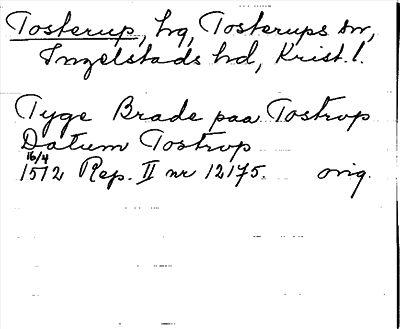 Tosterup, hg, Tosterups sn,
Ingelstads hd, Krist. l.
Tyge Brade paa Tostrop
Datum Tostrop
16/4
1512 Rep. II nr 12175. orig.